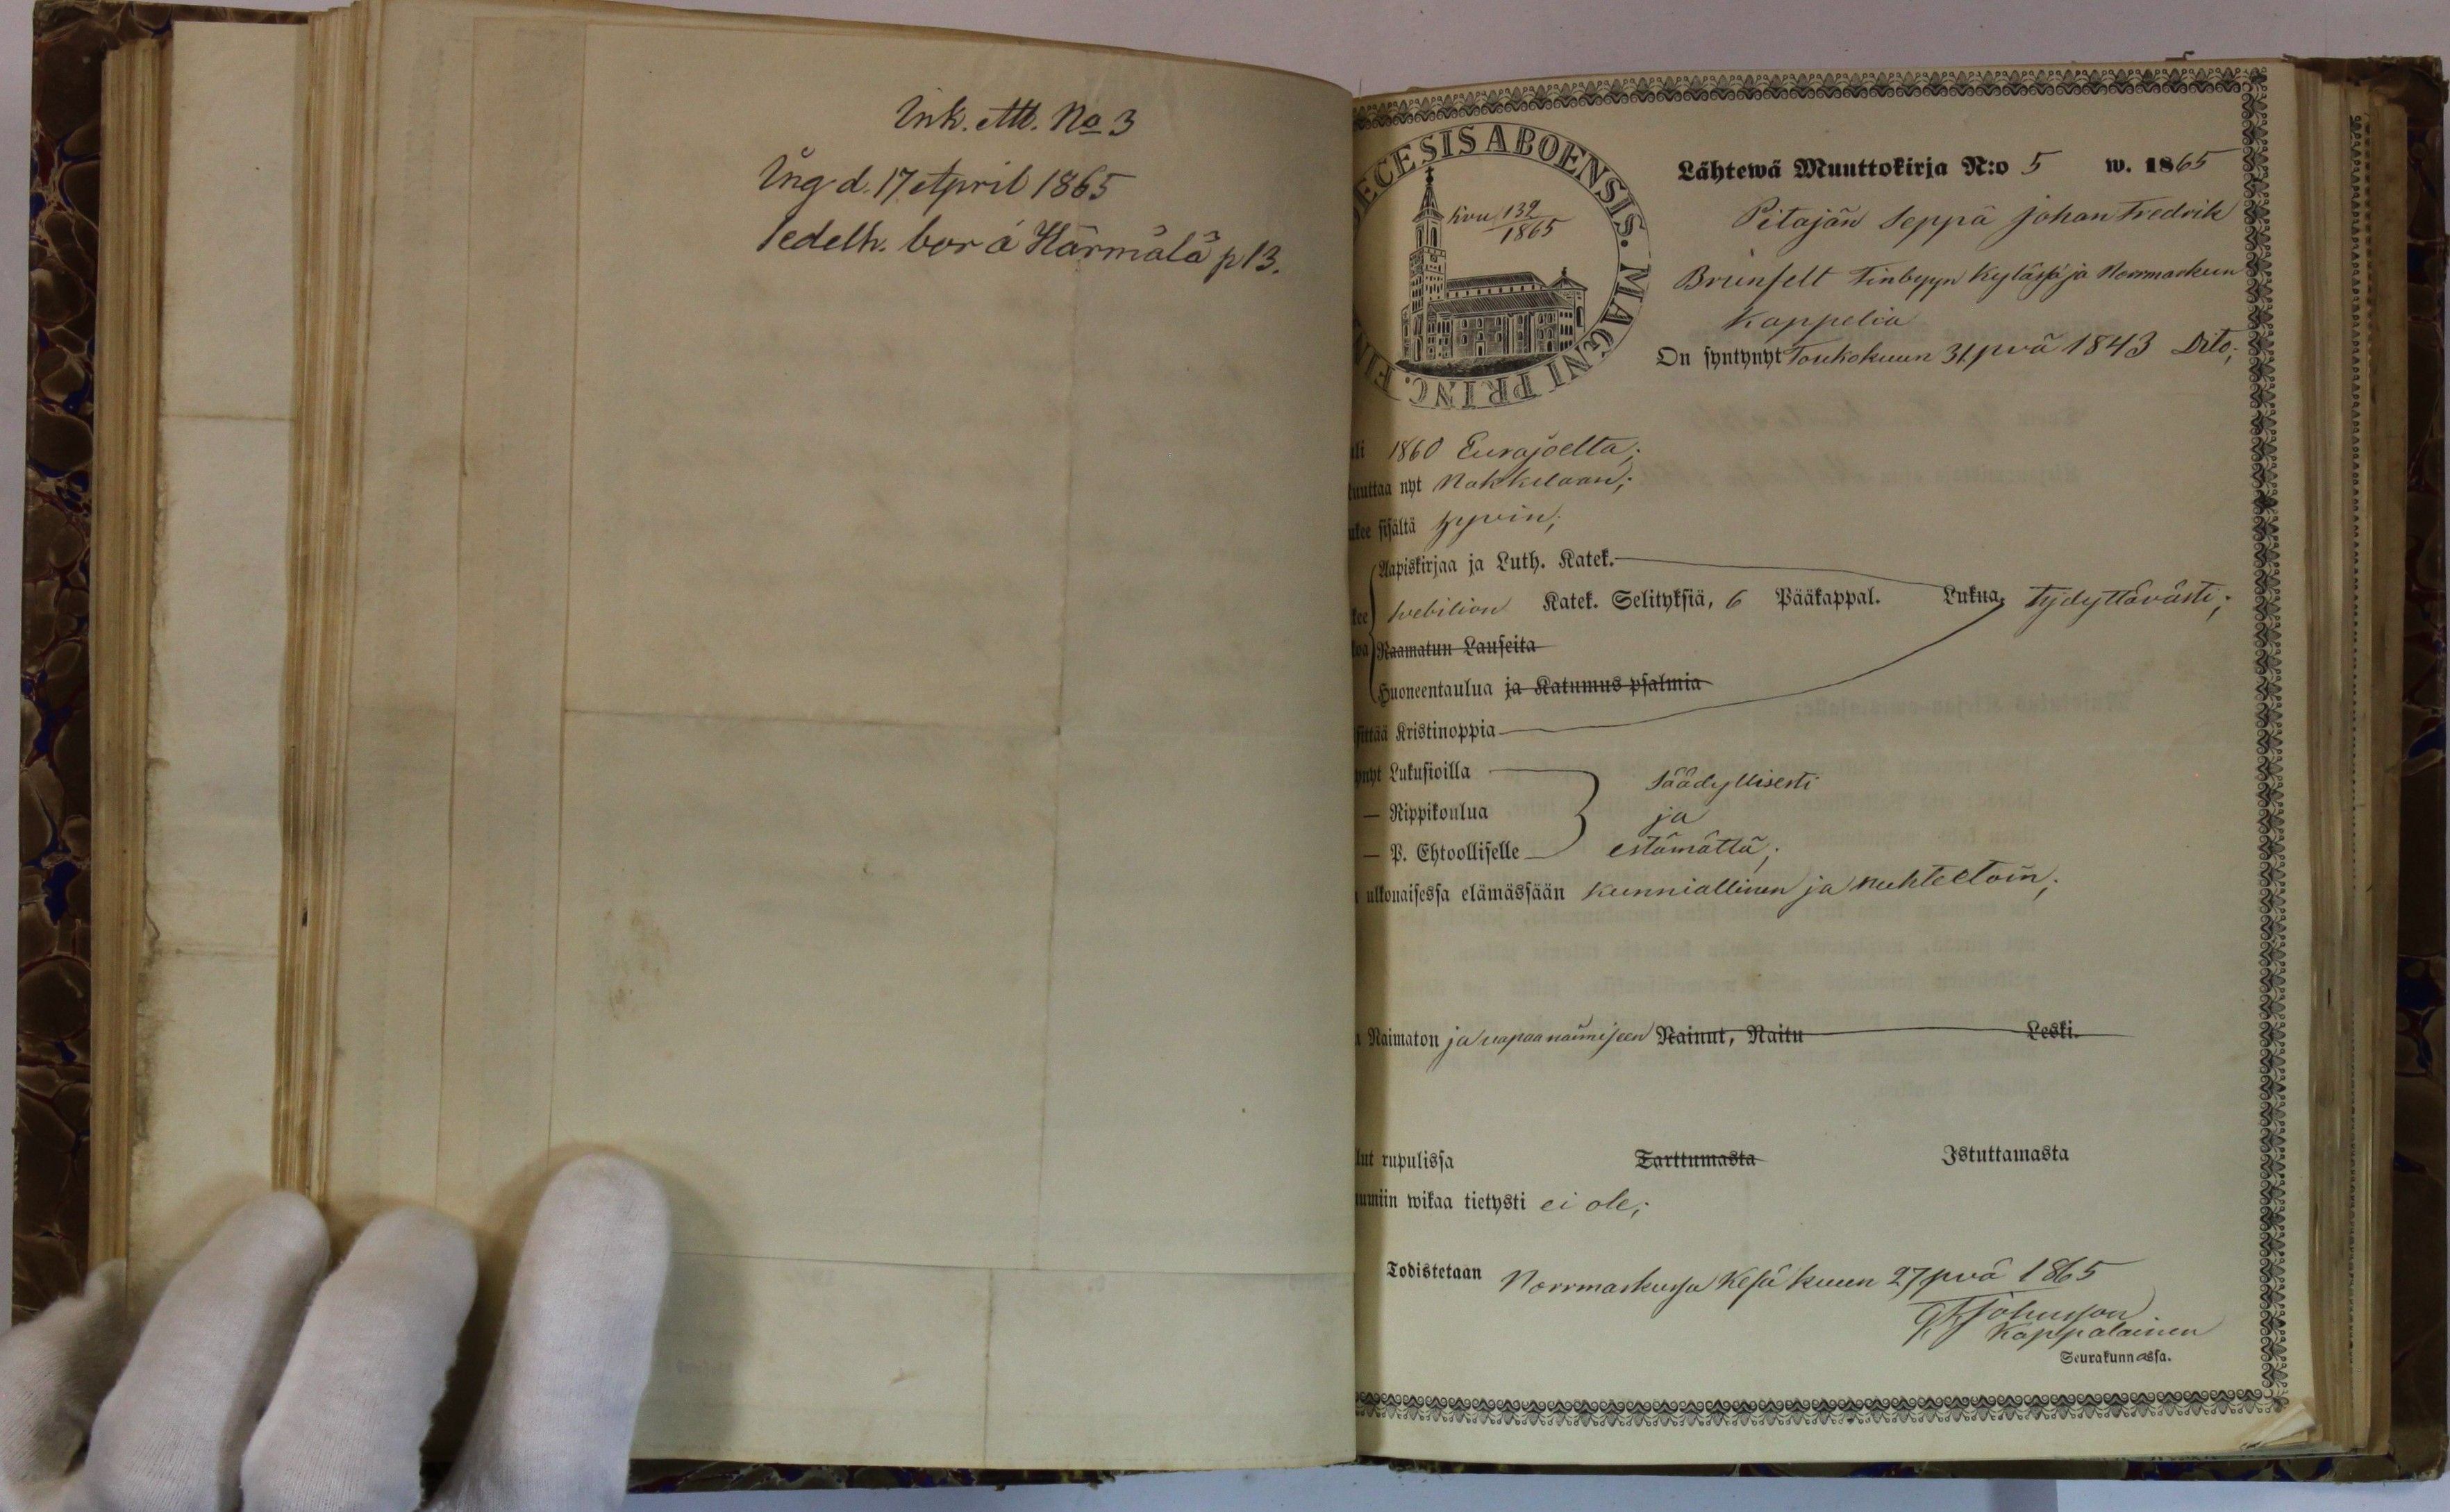 Ink. Att. No 3
Ing d. 17 April 1865
Sedelh. bor å Härmälä p 13.
ECESIS ABOENSIS. MAGNI PRINC. FIN
kvu 132
1865
Lähtewä Muuttokirja N:o 5 w. 1865
Pitäjän Seppä Johan Fredrik
Brunfelt Finbyyn Kylässä ja Norrmarkun
Kappelia
On syntynyt Toukokuun 31 pvä 1843 Dito;
uli 1860 Eurajoelta;
uuttaa nyt Nakkilaan;
ukee sisältä hyvin;
Aapiskirjaa ja Luth. Katek.
kee Svebilion Katek. Selityksiä, 6 Pääkappal. Lukua, tydyttävästi;
koa Raamatun Lauseita
Huoneentaulua ja Katumus psalmia
sittää Kristinoppia
ynyt Lukusioilla Säädyllisesti
— Rippikoulua ja
— P. Ehtoolliselle estämättä;
ulkonaisessa elämässään kunniallinen ja nuhteetoin;
Naimaton ja vapaa naimiseen Nainut, Naitu Leski.
lut rupulissa Tarttumasta Istuttamasta
umiin wikaa tietysti ei ole;
Todistetaan Norrmarkussa Kesäkuun 27 pvä 1865
Johnsson
Kappalainen
Seurakunnassa.